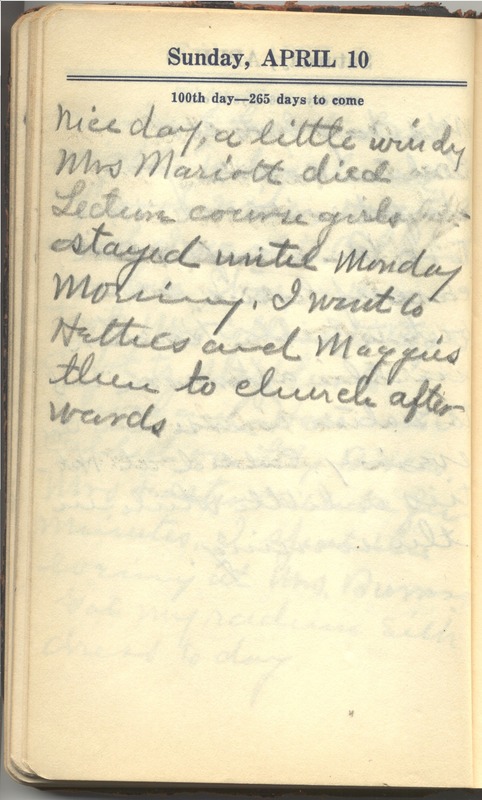 Sunday, APRIL 10
100th day—265 days to come
Nice day, a little windy
Mrs Mariott died
Lecture course girls left
stayed until Monday
Morning. I went to
Hetties and Maggies
then to church after
wards